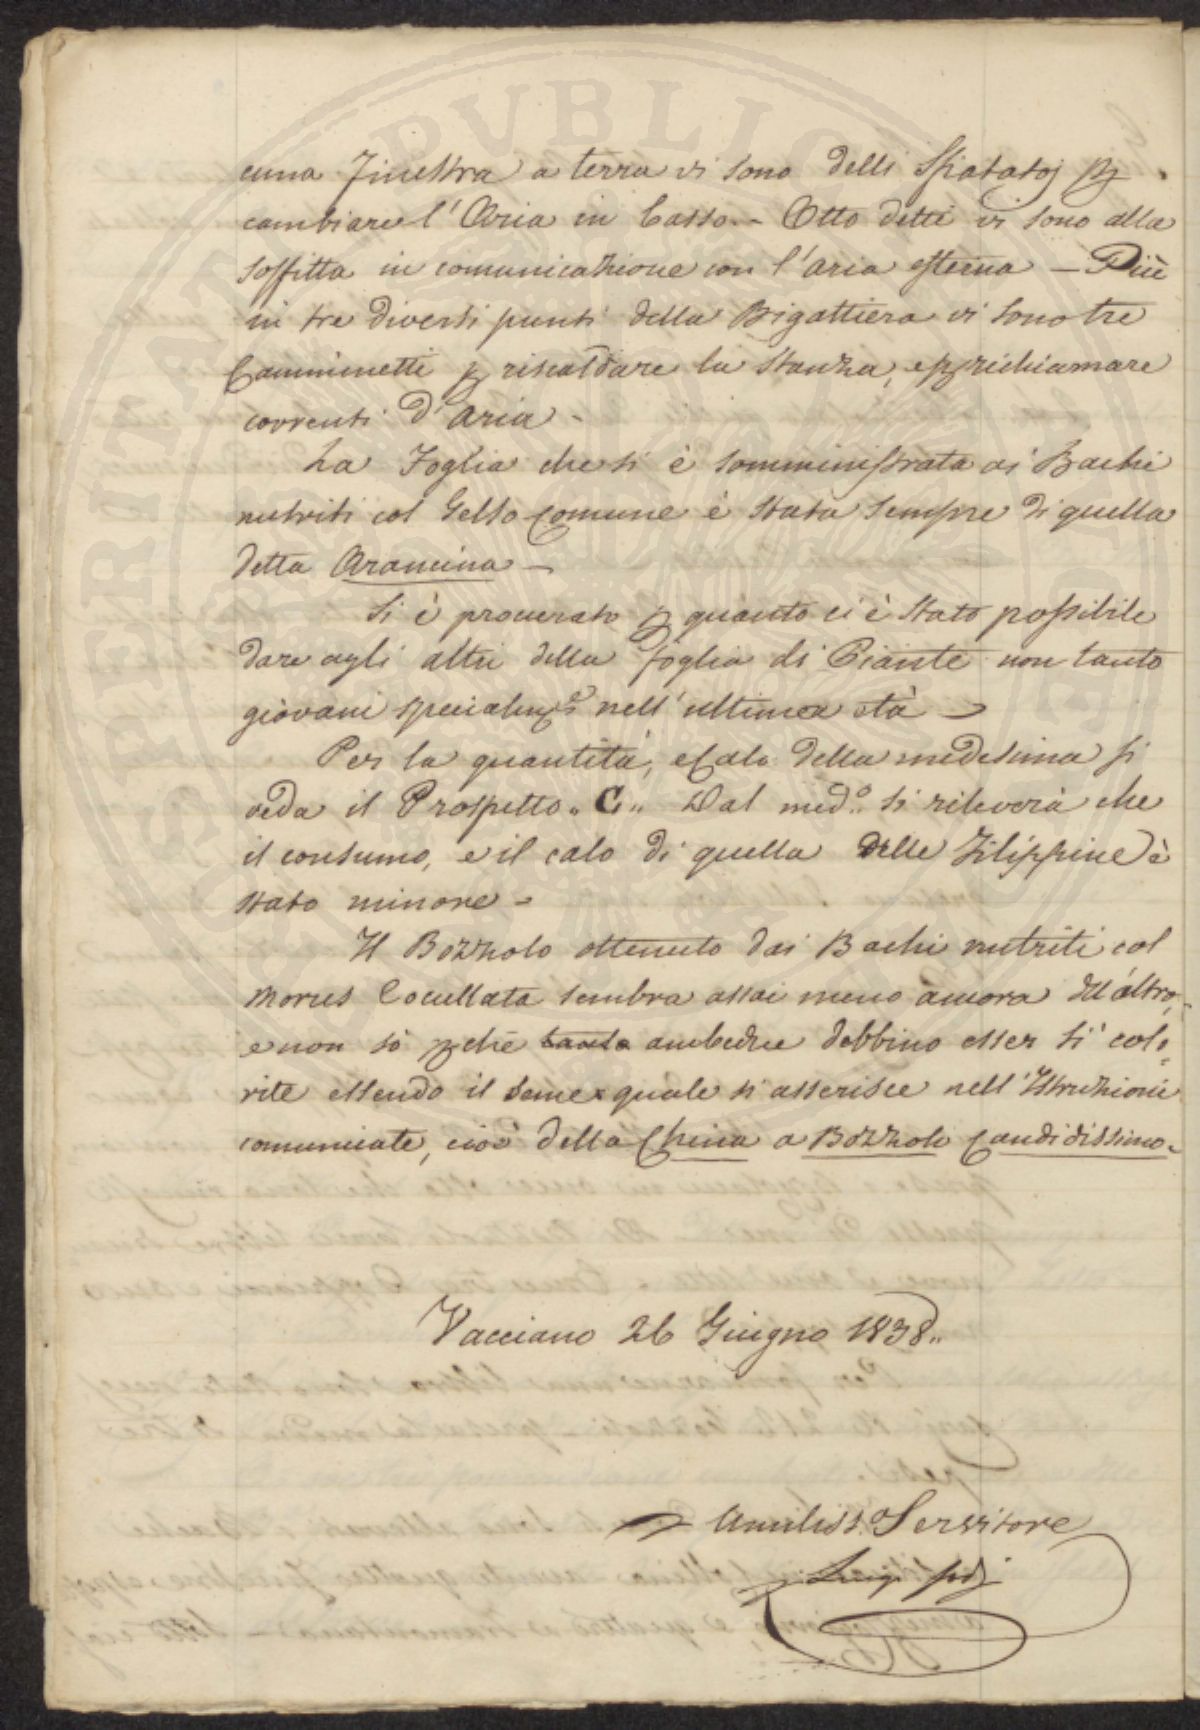 cuna Finestra a terra vi sono delli Sfiatatoj p
cambiare l'Aria in basso.- Otto detti vi sono alla
soffitta in comunicazione con l'aria esterna — Più
in tre diversi punti della Bigattiera vi sono tre
Camminetti p riscaldare la Stanza, e p richiamare
correnti d'Aria -
La Foglia che si è somministrata ai Bachi
nutriti col Gelso Comune è stata sempre di quella
detta Arancina —
Si è procurato p quanto ci è stato possibile
dare agli altri della foglia di Piante non tanto
giovani specialme nell'ultima età —
Per la quantità, e Calo della medesima si
veda il Prospetto „C„ Dal med.o si rileverà che
il consumo, e il calo di quella delle Filippine è
stato minore -
Il Bozzolo ottenuto dai Bachi nutriti col
Morus Cocullata sembra assai meno ancora dell'altro,
e non sò pchè tanto ambedue debbino esser sì colo=
rite essendo il seme quale si asserisce nell'Istruzioni
comunicate, cioè della China a Bozzolo Candidissimo.
Vacciano 26 Giugno 1838..
Umiliss.o Servitore
Luigi
PERITAT PUBLICA